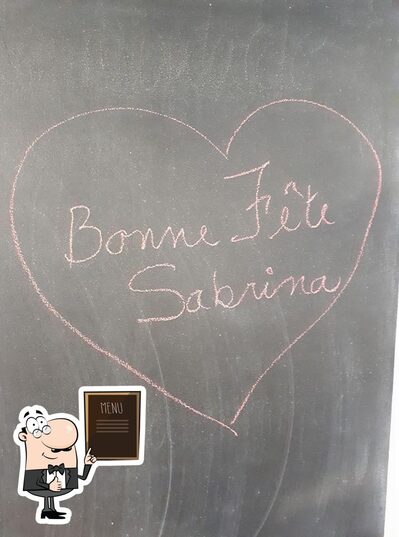 Bonne Fête
Sabrina
MENU